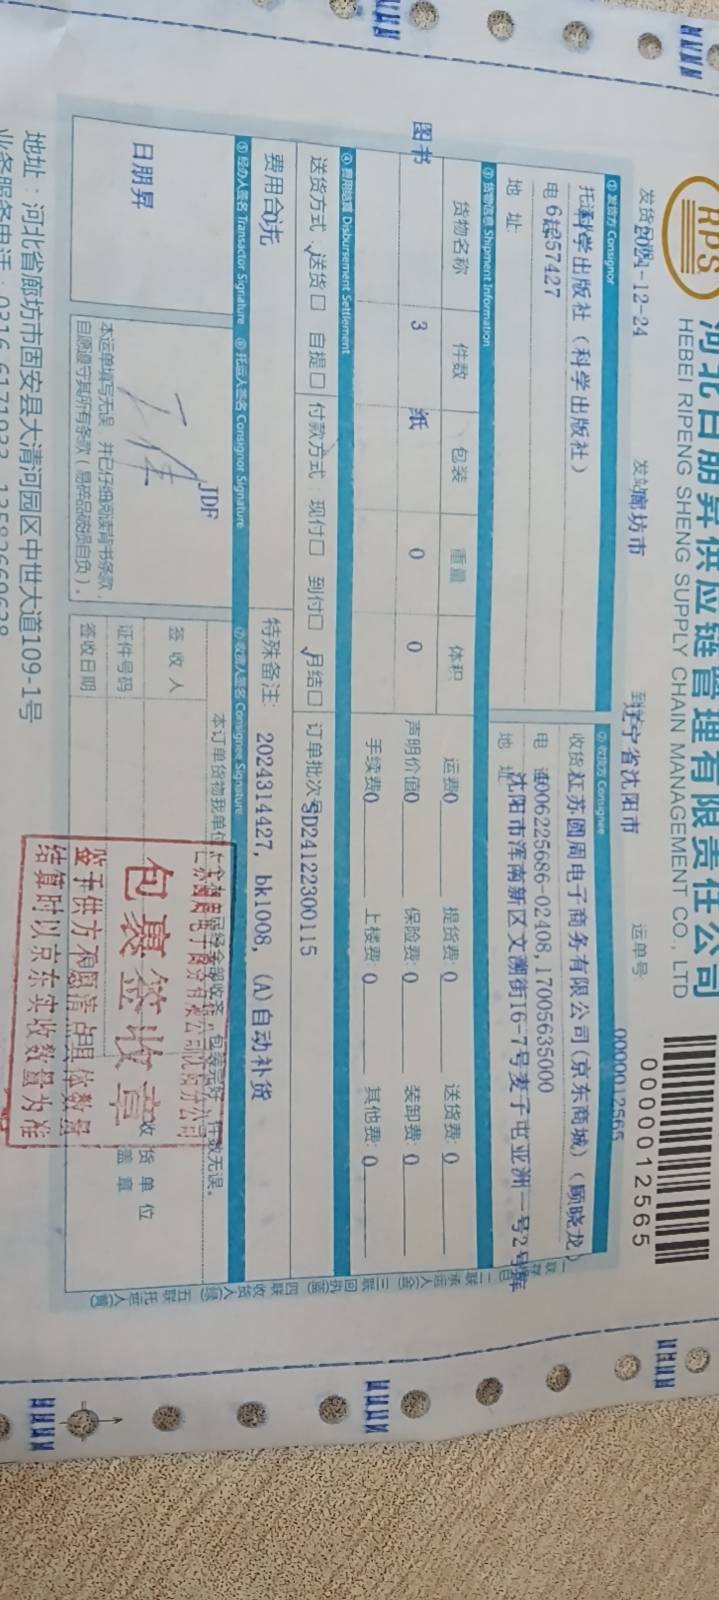 RPS
河北日朋昇供应链管理有限责任公司
HEBEI RIPENG SHENG SUPPLY CHAIN MANAGEMENT CO., LTD
0000012565
发货日期2024-12-24 发站廊坊市 到达辽宁省沈阳市 运单号 0000012565
① 发货方 Consignor
托运 科学出版社 (科学出版社)
电话6 57427
地 址
② 收货方 Consignee
收货 江苏圆周电子商务有限公司(京东商城) (顾晓龙)
电 4006225686-02408,17005635000
地 址 沈阳市浑南新区文溯街16-7号麦子屯亚洲一号2号库
③ 货物信息 Shipment Information
货物名称 件数 包装 重量 体积
图书 3 纸 0 0
运费0 提货费: 0 送货费: 0
声明价值0 保险费: 0 装卸费: 0
手续费0 上楼费: 0 其他费: 0
④ 费用结算 Disbursement Settlement
送货方式 √送货□ 自提□ 付款方式 现付□ 到付□ √月结□ 订单批次号SD24122300115
费用合计0元
特殊备注: 2024314427, bk1008, (A)自动补货
⑤ 经办人签名 Transactor Signature ⑥ 托运人签名 Consignor Signature ⑦ 收货人签名 Consignee Signature
日朋昇
JDF
本运单填写无误 并已仔细阅读背书条款,
自愿遵守其所有条款(易碎品破损自负)。
本订单货物我单位 已经全部收齐,包装完好,件数无误。
签 收 人
证件号码
签收日期
收 货 单 位
盖 章
江苏圆周电子商务有限公司沈阳分公司
包裹签收章
鉴于供方不愿清点具体数量
结算时以京东实收数量为准
地址:河北省廊坊市固安县大清河园区中世大道109-1号
业务服务电话:0316-6171933 13582660638